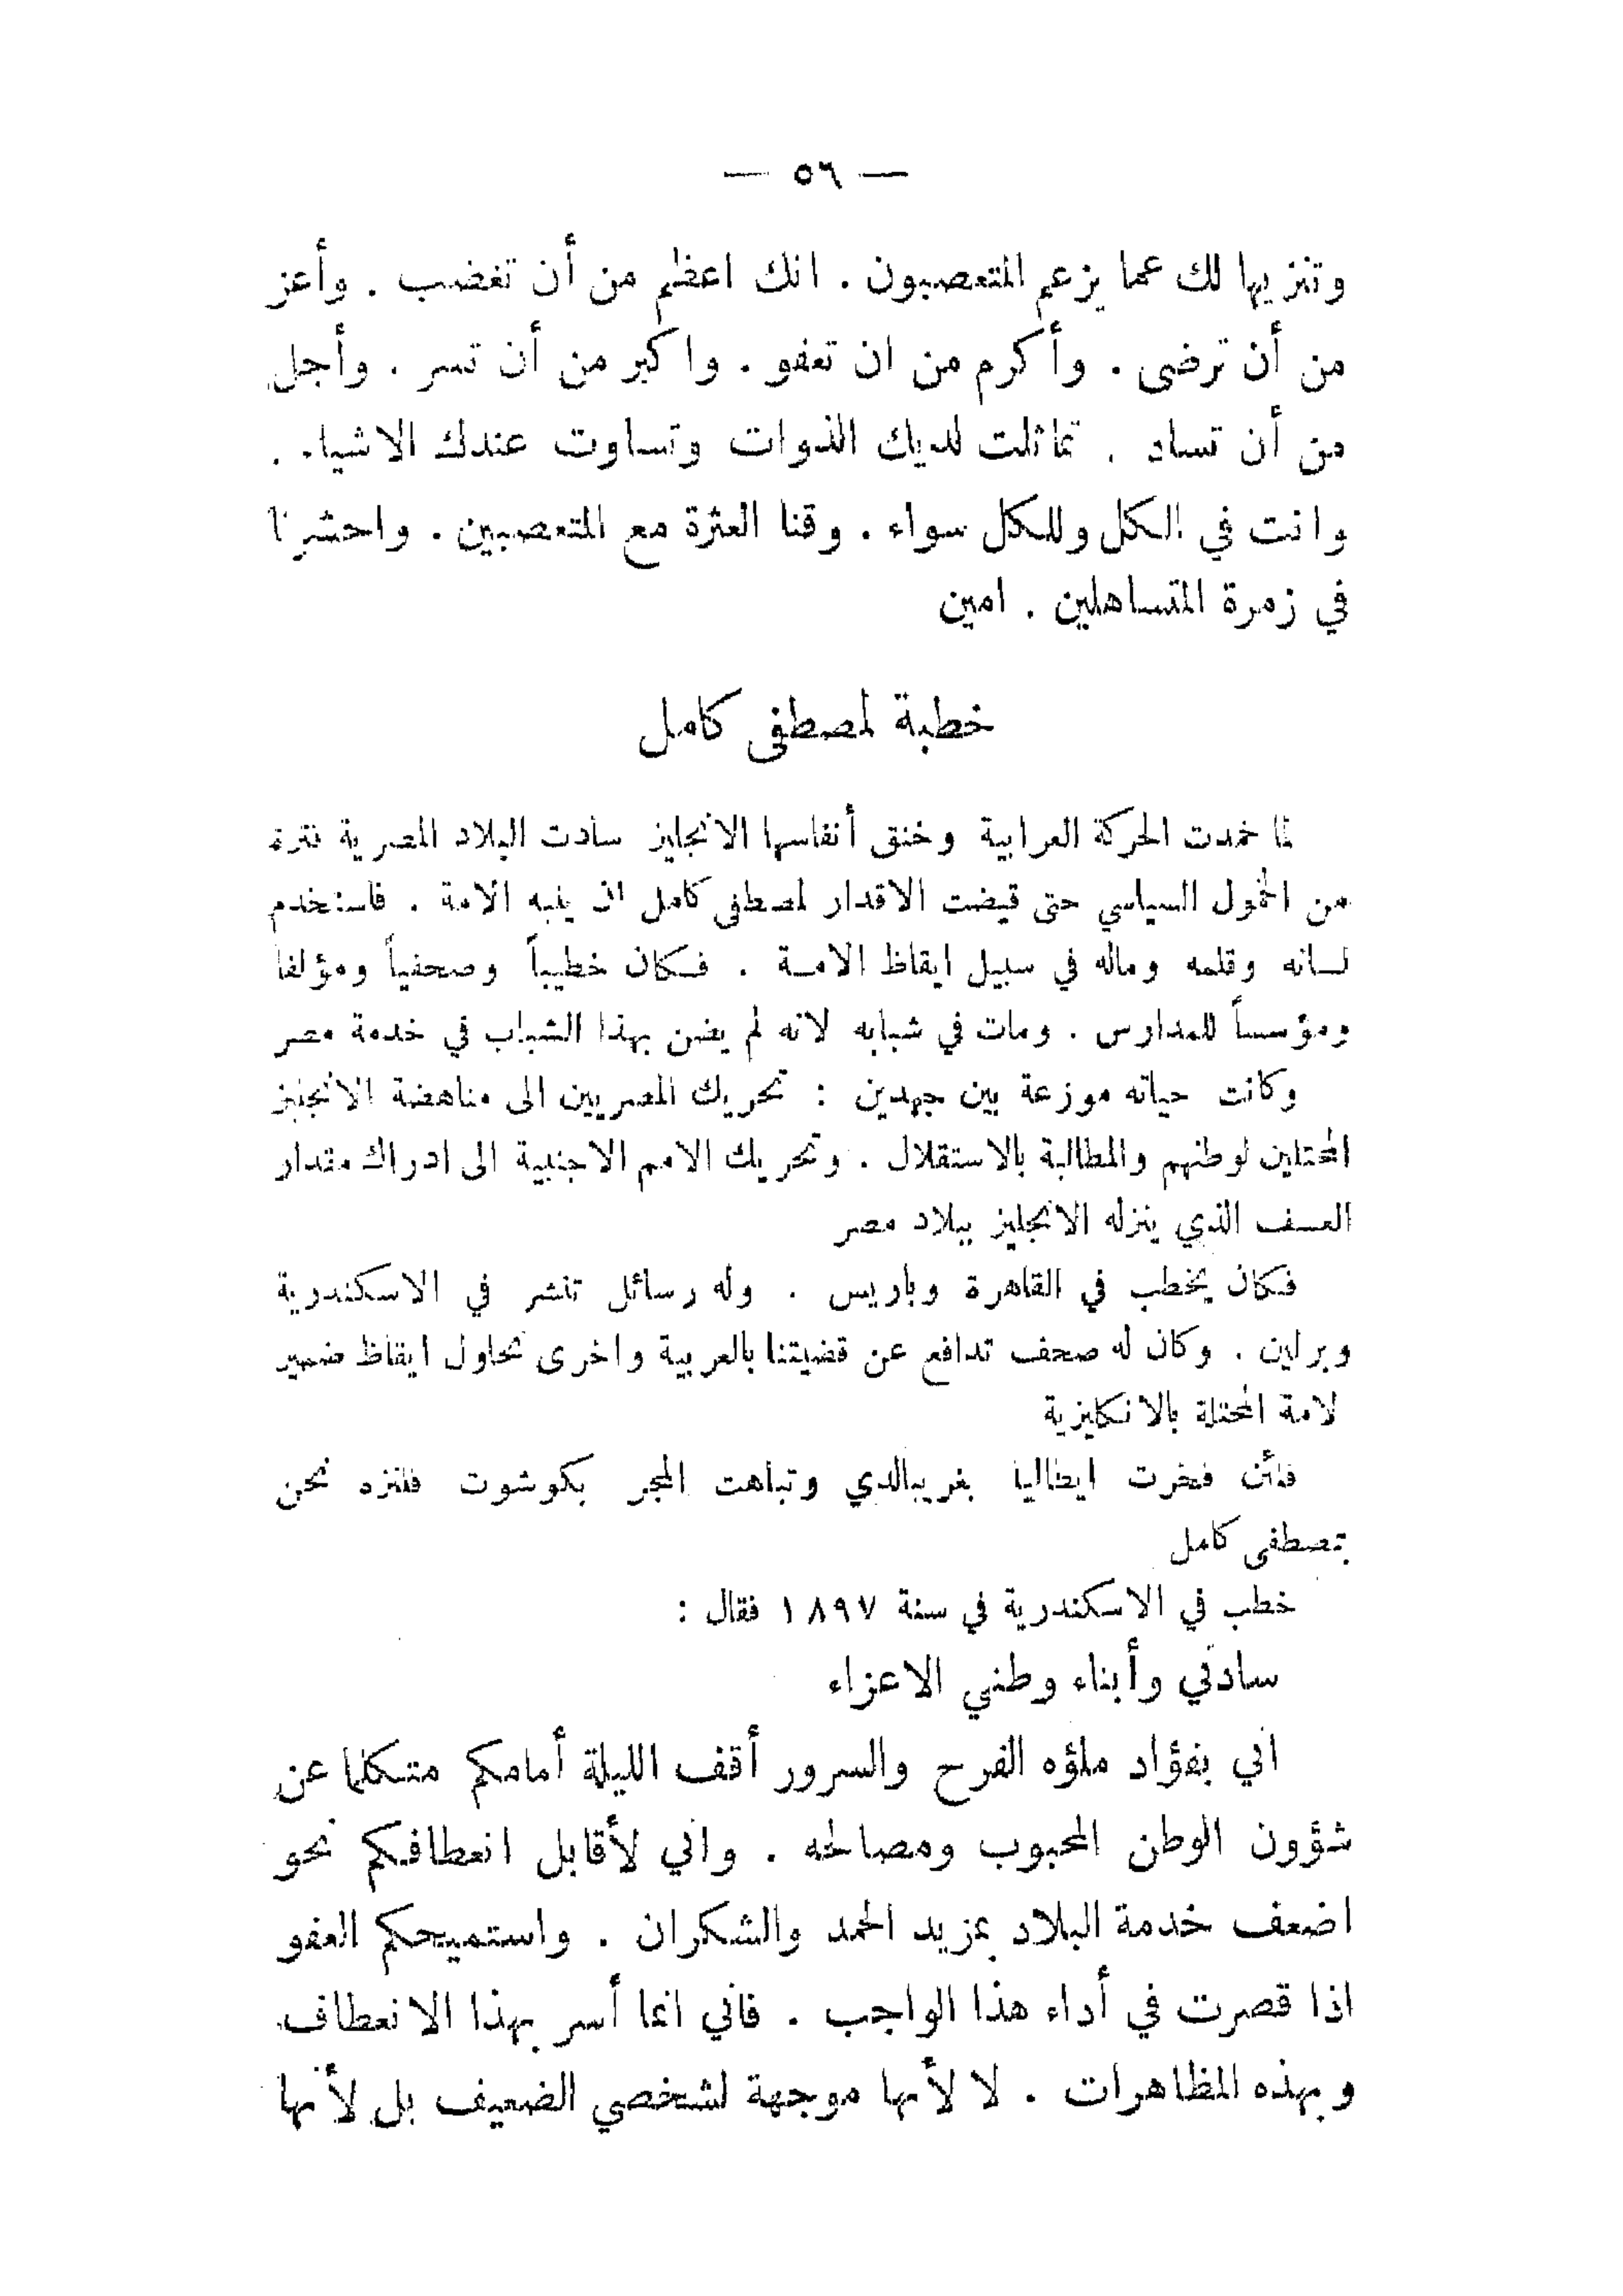 — ٥٦ —
وتنزيها لك عما يزعم المتعصبون . انك اعظم من أن تغضب . وأعز
من أن ترضى . وأكرم من ان تعفو . واكبر من أن تسر . وأجل
من أن تساد . تماثلت لديك الذوات وتساوت عندك الاشياء .
وانت في الكل وللكل سواء . وقنا العثرة مع المتعصبين . واحشرنا
في زمرة المتساهلين . امين
خطبة لمصطفى كامل
لما خمدت الحركة العرابية وخنق أنفاسها الانجليز سادت البلاد المصرية فترة
من الخمول السياسي حتى قيضت الاقدار لمصطفى كامل ان ينبه الامة . فاستخدم
لسانه وقلمه وماله في سبيل ايقاظ الامة . فكان خطيباً وصحفياً ومؤلفا
ومؤسساً للمدارس . ومات في شبابه لانه لم يضن بهذا الشباب في خدمة مصر
وكانت حياته موزعة بين جهدين : تحريك المصريين الى مناهضة الانجليز
المحتلين لوطنهم والمطالبة بالاستقلال . وتحريك الامم الاجنبية الى ادراك مقدار
العسف الذي ينزله الانجليز ببلاد مصر
فكان يخطب في القاهرة وباريس . وله رسائل تنشر في الاسكندرية
وبرلين . وكان له صحف تدافع عن قضيتنا بالعربية واخرى تحاول ايقاظ ضمير
لامة المحتلة بالانكليزية
فلئن فخرت ايطاليا بغريبالدي وتباهت المجر بكوشوت فلنزه نحن
بمصطفى كامل
خطب في الاسكندرية في سنة ١٨٩٧ فقال :
سادتي وأبناء وطني الاعزاء
اني بفؤاد ملؤه الفرح والسرور أقف الليلة أمامكم متكلما عن
شؤون الوطن المحبوب ومصالحه . واني لأقابل انعطافكم نحو
اضعف خدمة البلاد بمزيد الحمد والشكران . واستميحكم العفو
اذا قصرت في أداء هذا الواجب . فاني انما أسر بهذا الانعطاف
وبهذه المظاهرات . لا لأنها موجهة لشخصي الضعيف بل لأنها